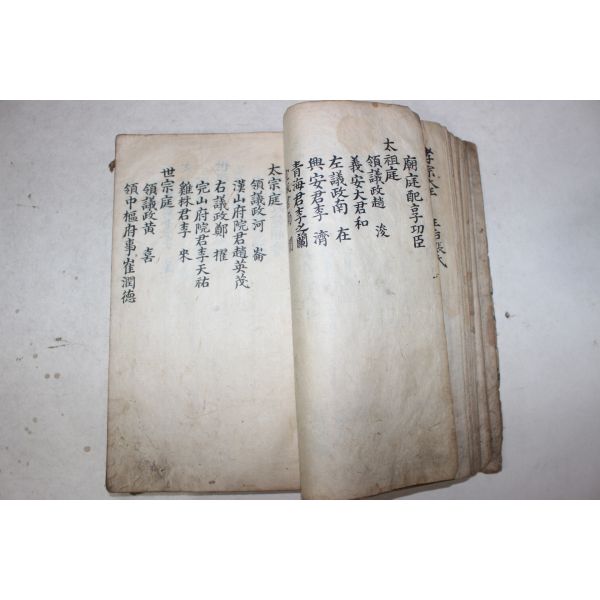 廟庭配享功臣
太祖庭
領議政趙 浚
義安大君和
左議政南 在
興安君李 濟
青海君李之蘭
太宗庭
領議政河 崙
漢山府院君趙英茂
右議政鄭 擢
完山府院君李天祐
雞林君李 來
世宗庭
領議政黃 喜
領中樞府事崔潤德